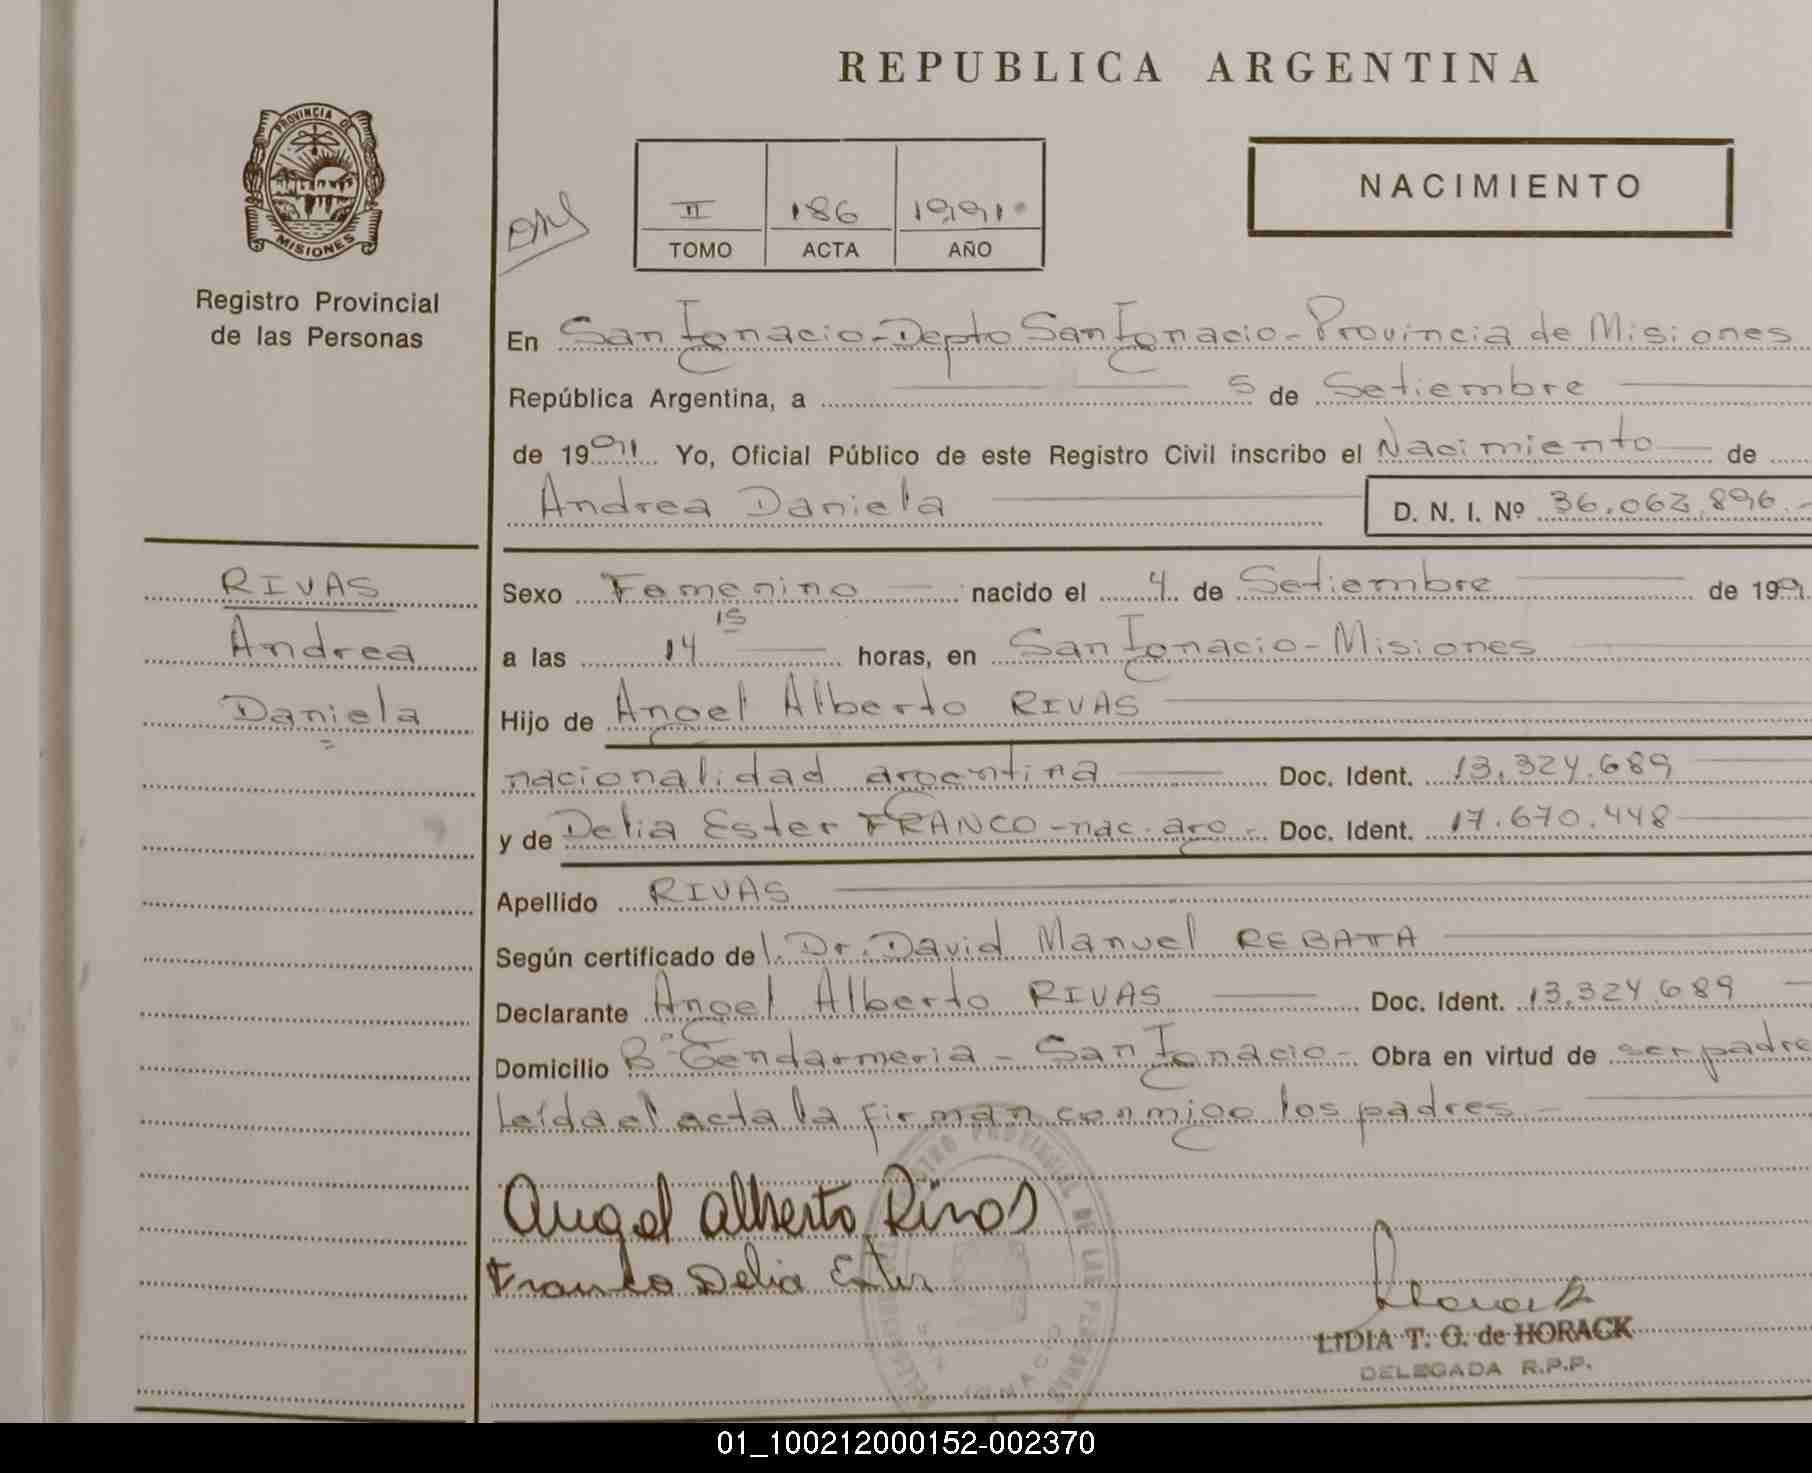 REPUBLICA ARGENTINA
PROVINCIA DE
MISIONES
Registro Provincial
de las Personas
NACIMIENTO
II 186 1991
TOMO ACTA AÑO
En San Ignacio-Depto San Ignacio-Provincia de Misiones
República Argentina, a 5 de Setiembre
de 1991 Yo, Oficial Público de este Registro Civil inscribo el Nacimiento de
Andrea Daniela
D. N. I. Nº 36.062.896.-
RIVAS
Andrea
Daniela
Sexo Femenino nacido el 4 de Setiembre de 199
a las 14 15 horas, en San Ignacio-Misiones
Hijo de Angel Alberto RIVAS
nacionalidad argentina Doc. Ident. 13.324.689
y de Delia Ester FRANCO-nac. arg.- Doc. Ident. 17.670.448
Apellido RIVAS
Según certificado del Dr. David Manuel REBATTA
Declarante Angel Alberto RIVAS Doc. Ident. 13.324.689
Domicilio Bº Gendarmeria - San Ignacio- Obra en virtud de ser padre
Leída el acta la firman conmigo los padres-
Angel Alberto Rivas
Franco Delia Ester
LIDIA T. G. de HORACK
DELEGADA R.P.P.
01_100212000152-002370